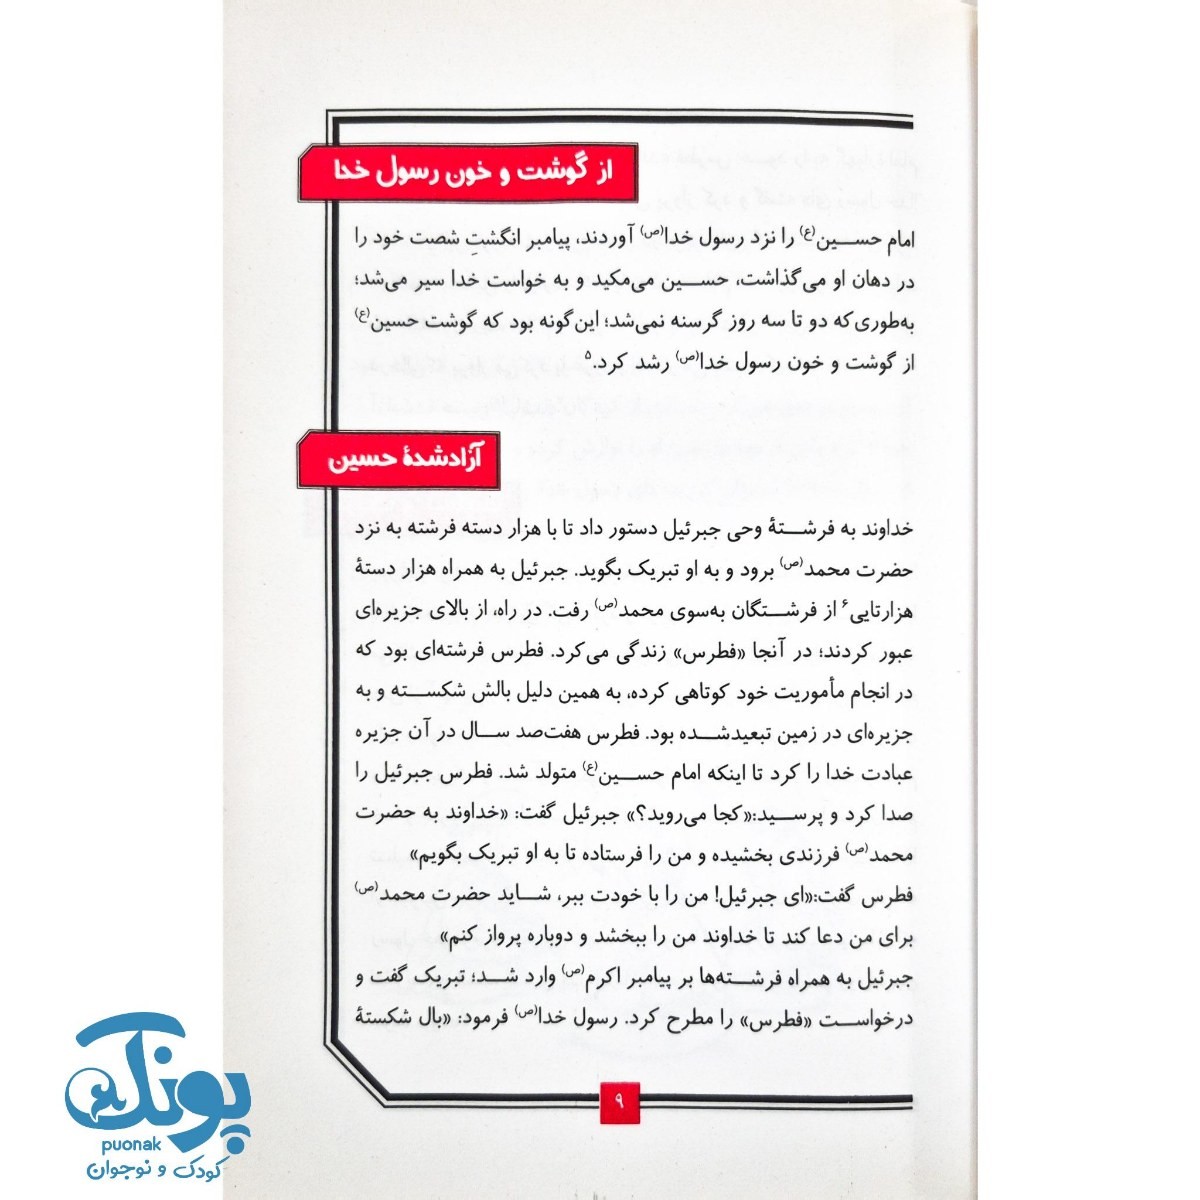 از گوشت و خون رسول خدا
امام حسین(ع) را نزد رسول خدا(ص) آوردند، پیامبر انگشتِ شصت خود را
در دهان او می‌گذاشت، حسین می‌مکید و به خواست خدا سیر می‌شد؛
به‌طوری‌که دو تا سه روز گرسنه نمی‌شد؛ این‌گونه بود که گوشت حسین(ع)
از گوشت و خون رسول خدا(ص) رشد کرد.۵
آزادشدهٔ حسین
خداوند به فرشتهٔ وحی جبرئیل دستور داد تا با هزار دسته فرشته به نزد
حضرت محمد(ص) برود و به او تبریک بگوید. جبرئیل به همراه هزار دستهٔ
هزارتایی۶ از فرشتگان به‌سوی محمد(ص) رفت. در راه، از بالای جزیره‌ای
عبور کردند؛ در آنجا «فطرس» زندگی می‌کرد. فطرس فرشته‌ای بود که
در انجام مأموریت خود کوتاهی کرده، به همین دلیل بالش شکسته و به
جزیره‌ای در زمین تبعیدشده بود. فطرس هفت‌صد سال در آن جزیره
عبادت خدا را کرد تا اینکه امام حسین(ع) متولد شد. فطرس جبرئیل را
صدا کرد و پرسید:«کجا می‌روید؟» جبرئیل گفت: «خداوند به حضرت
محمد(ص) فرزندی بخشیده و من را فرستاده تا به او تبریک بگویم»
فطرس گفت:«ای جبرئیل! من را با خودت ببر، شاید حضرت محمد(ص)
برای من دعا کند تا خداوند من را ببخشد و دوباره پرواز کنم»
جبرئیل به همراه فرشته‌ها بر پیامبر اکرم(ص) وارد شد؛ تبریک گفت و
درخواست «فطرس» را مطرح کرد. رسول خدا(ص) فرمود: «بال شکستهٔ
۹
پونک
puonak
کودک و نوجوان